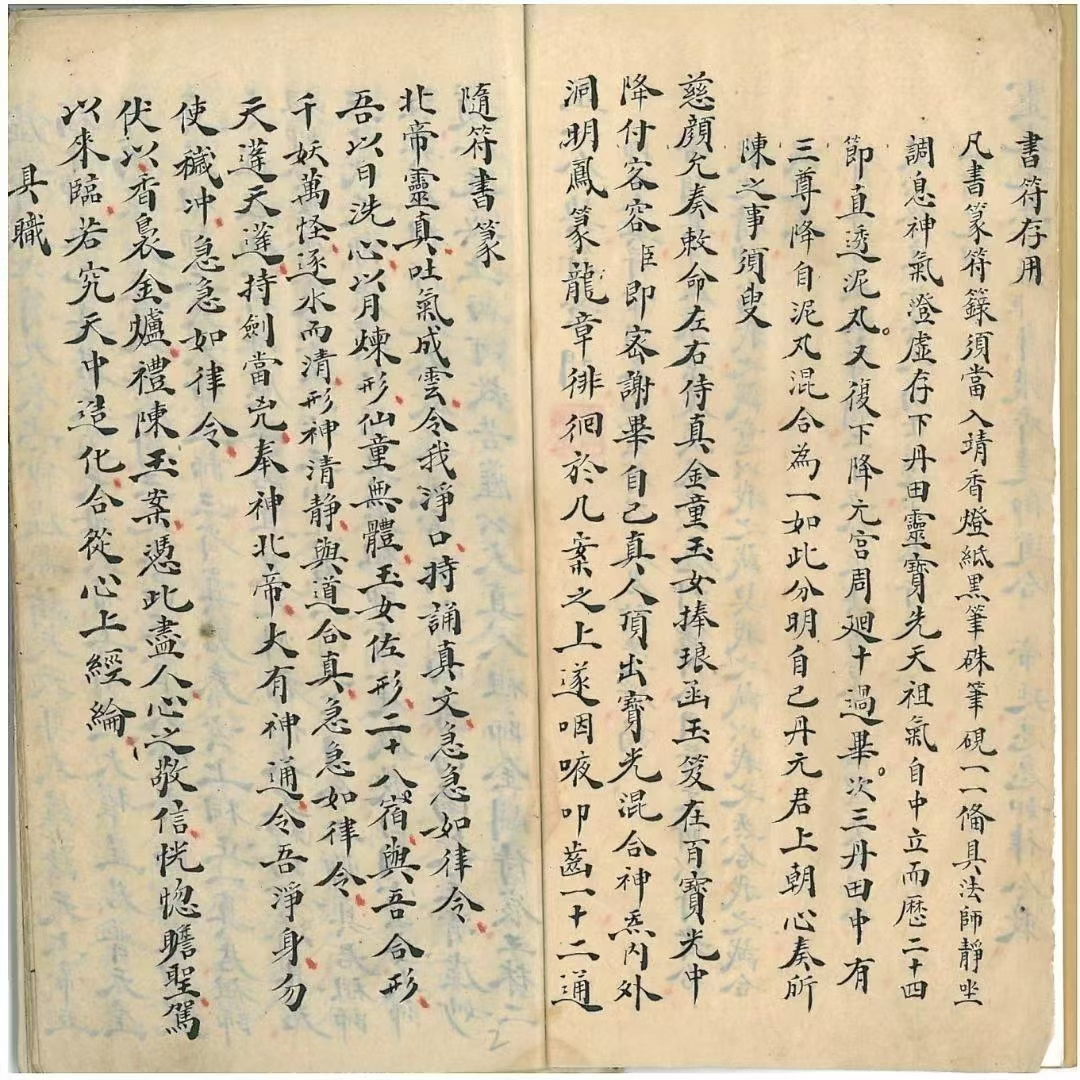 書符存用
凡書篆符籙須當入靖香燈紙黑筆硃筆硯一一備具法師靜坐
調息神氣澄虛存下丹田靈寶先天祖氣自中立而歷二十四
節直透泥丸又復下降元宮周廻十過畢次三丹田中有
三尊降自泥丸混合為一如此分明自己丹元君上朝心奏所
陳之事須臾
慈顏允奏敕命左右侍真金童玉女捧琅函玉笈在百寶光中
降付容容臣即密謝畢自己真人頂出寶光混合神炁內外
洞明鳳篆龍章徘徊於几案之上遂咽唊叩齒一十二通
隨符書篆
北帝靈真吐氣成雲令我淨口持誦真文急急如律令
吾以日洗心以月煉形仙童無體玉女佐形二十八宿與吾合形
千妖萬怪逐水而清形神清静與道合真急急如律令
天蓬天蓬持劍當兇奉神北帝大有神通令吾淨身勿
使穢冲急急如律令
伏以香裊金爐禮陳玉案憑此盡人心之敬信恍惚瞻聖駕
以來臨若究天中造化合從心上經綸
具職
2